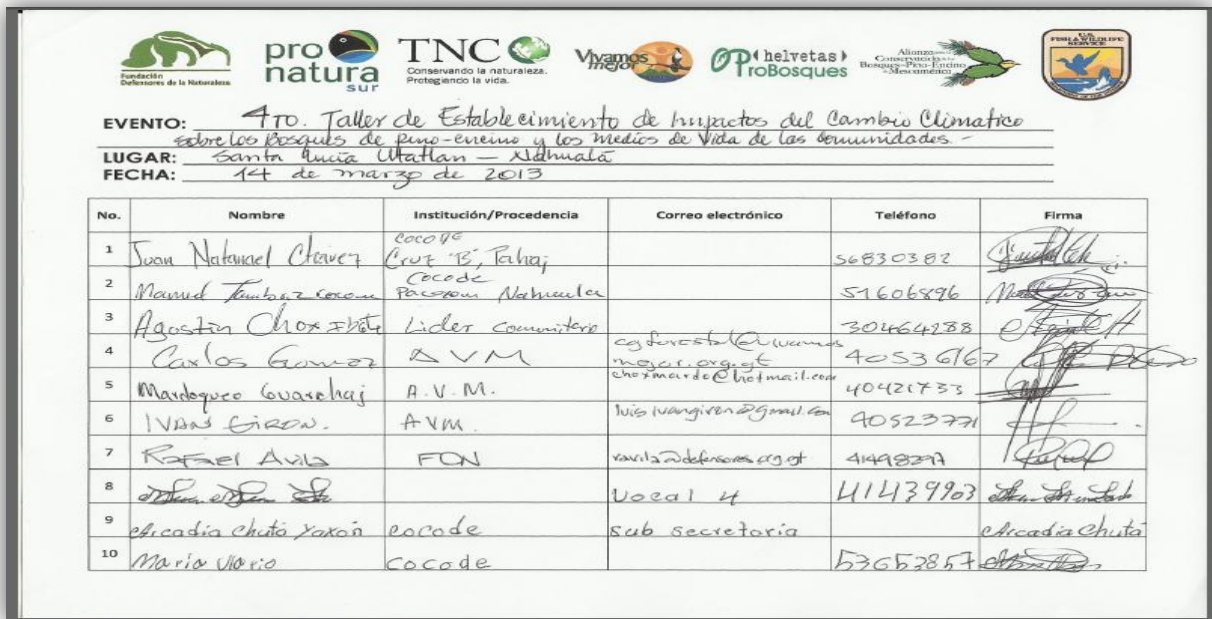 Fundación
Defensores de la Naturaleza
pro
natura
sur
TNC
Conservando la naturaleza.
Protegiendo la vida.
Vivamos
mejor
helvetas
ProBosques
Alianza
Conservación
Bosques-Pino-Encino
Mesoamérica
U.S.
FISH & WILDLIFE
SERVICE
EVENTO: 4TO. Taller de Establecimiento de Impactos del Cambio Climatico
sobre los Bosques de pino-encino y los medios de Vida de las comunidades.-
LUGAR: Santa Lucia Utatlan - Nahualá
FECHA: 14 de marzo de 2013
No. Nombre Institución/Procedencia Correo electrónico Teléfono Firma
1 Juan Natanael Chavez COCODE Cruz "B", Pahaj 56830382
2 Manuel Cocode Pacorom 51606896
3 Agostin Chox Lider comunitario 30464288
4 Carlos Gomez AVM 40536167
5 Mardoqueo Guarchaj A.V.M. choxmardo@hotmail.com 40421733
6 IVAN GIRON. AVM. luisivangiron@gmail.com 40523771
7 Rafael Avila FDN ravila@defensores.org.gt 41498297
8 Vocal 4 41439903
9 Arcadia Chutá Yaxón cocode sub secretaria Arcadia Chutá
10 Maria cocode 53653857